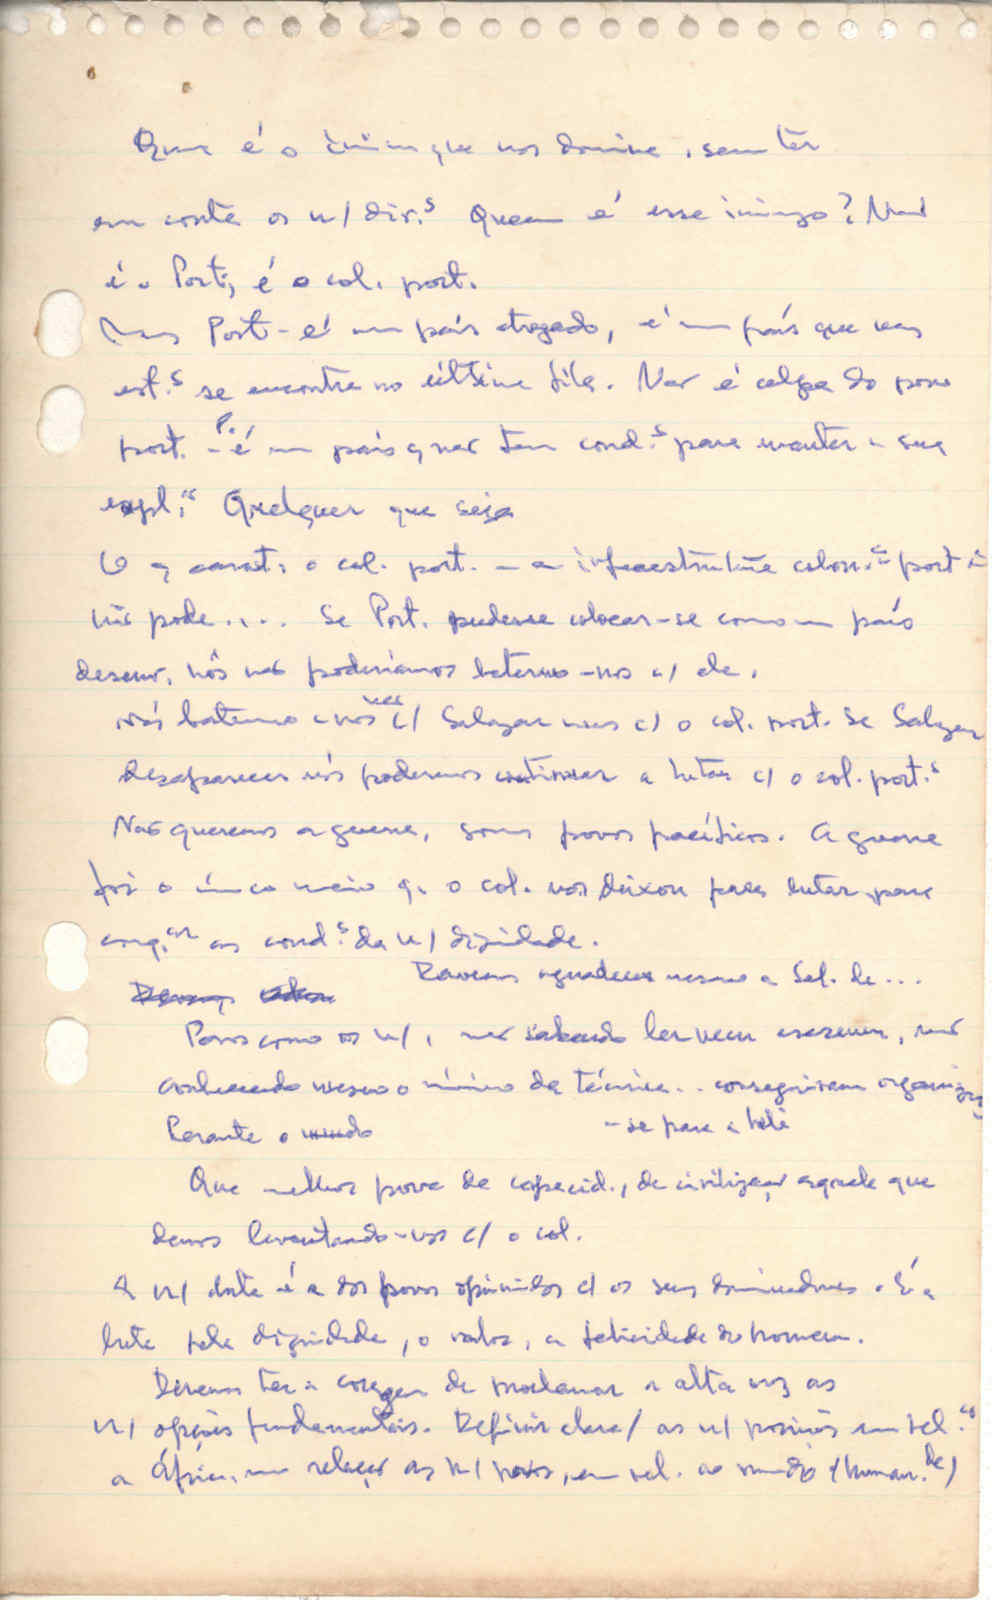 Quem é o inimigo que nos domina, sem ter
em conta os n/ dir.s Quem é esse inimigo? Não
é o Port., é o col. port.
Mas Port - é um país atrazado, é um país que nas
est.s se encontra na última fila. Não é culpa do povo
port. - P. é um país q não tem cond.s para manter a sua
expl. Qualquer que seja
O q caract. o col. port. - a infraestrutura colon. port.
não pode.... Se Port. pudesse colocar-se como um país
desenv. nós não poderíamos batermo-nos c/ ele.
Nós batemo-nos não c/ Salazar mas c/ o col. port. Se Salazar
desaparecer nós poderemos continuar a lutar c/ o col. port.s
Não queremos a guerra, somos povos pacíficos. A guerra
foi o único meio q. o col. nos deixou para lutar para
as cond.s da n/ dignidade.
Devemos agradecer mesmo a Sal. de...
Povos como os n/, não sabendo ler nem escrever, não
conhecendo mesmo o mínimo da técnica.. conseguiram organizar
-se para a luta
Perante o mundo
Que melhor prova de capacid., de civilização aquela que
demos levantando-nos c/ o col.
A n/ luta é a dos povos oprimidos c/ os seus dominadores. É a
luta pela dignidade, o valor, a felicidade do homem.
Devemos ter a coragem de proclamar a alta voz as
n/ opções fundamentais. Definir clara/ as n/ posições em rel.
a África, em relação aos n/ povos, em rel. ao mundo (human.de)